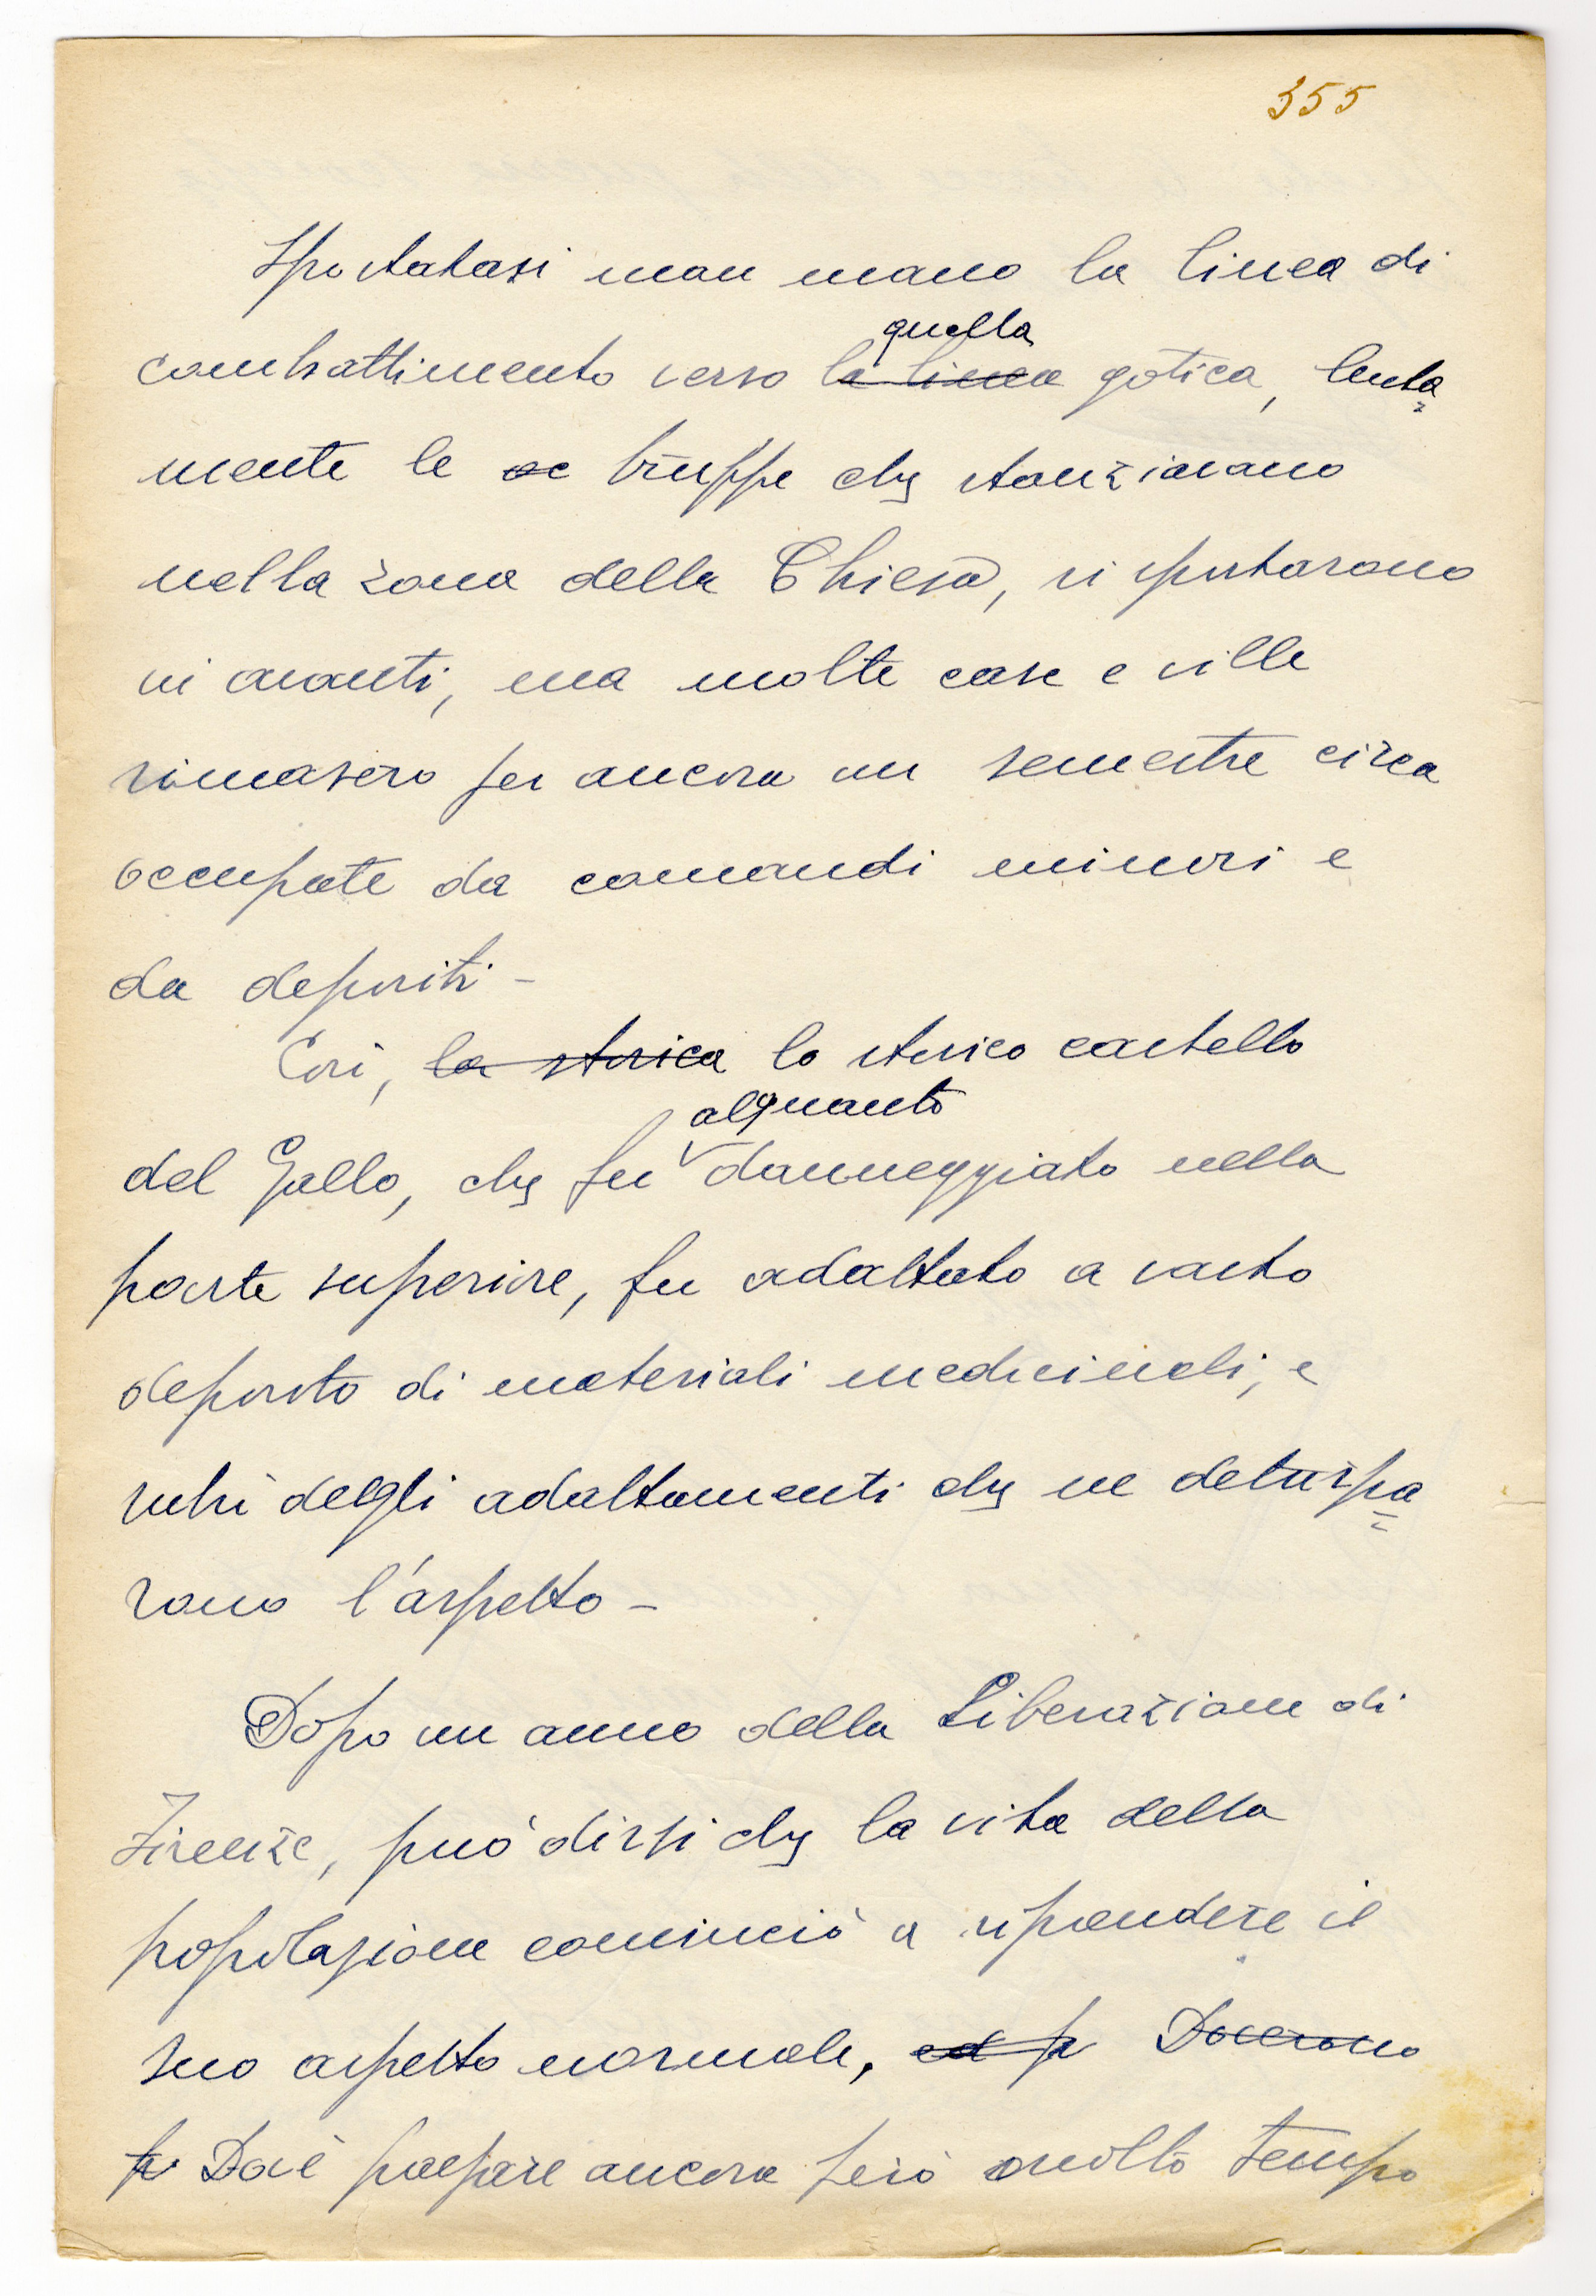 355
Spostatasi man mano la linea di
quella
combattimento verso la linea gotica, lenta=
mente le oc truppe che stanziavano
nella zona della Chiesa, si spostarono
in avanti, ma molte case e ville
rimasero per ancora un semestre circa
occupate da comandi minori e
da depositi -
Così, la storica lo storico castello
alquanto
del Gallo, che fu danneggiato nella
parte superiore, fu adattato a vasto
deposito di materiali medicinali, e
subì degli adattamenti che ne deturpa=
rono l'aspetto -
Dopo un anno della Liberazione di
Firenze, può dirsi che la vita della
popolazione cominciò a riprendere il
suo aspetto normale, ed p Doverono
p Dovè passare ancora però molto tempo